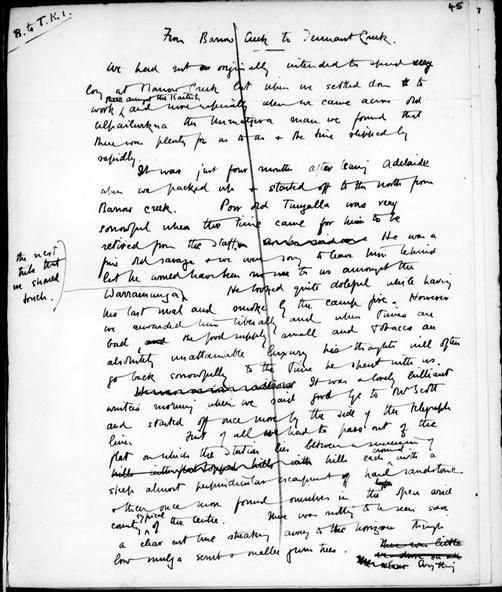 B. to T.K. 1.
45
From Barrow Creek to Tennant Creek.
We had not originally intended to spend very
long at Barrow Creek but when we settled down to
work once amongst the Kaitish and more especially when we came across old
the Unmatjera man we found that
there was plenty for us to do & the time slipped by
rapidly.
It was just four months after leaving Adelaide
when we packed up & started off to the north from
Barrow Creek. Poor old Tungalla was very
sorrowful when the time came for him to be
retired from the staff. He was a
fine old savage & we were sorry to leave him behind
but he would have been no use to us amongst the
the next
tribe that
we should
touch.
Warramunga. He looked quite doleful while having
his last meal and smoke by the camp fire. However
we rewarded him liberally and when times are
bad the food supply small and tobacco an
absolutely unattainable luxury his thoughts will often
go back sorrowfully to the time he spent with us.
It was a lovely brilliant
winters morning when we said good bye to Mr Scott
and started off once more by the side of the telegraph
line. First of all we had to pass out of the
flat on which the station lies between a
hills each crowned with a
steep almost perpendicular escarpment of hard sandstone
& then once more found ourselves in the open arid
country typical of the centre. There was nothing to be seen save
a clear cut line streaking away to the horizon through
low mulga scrub and smaller gum trees. Everything